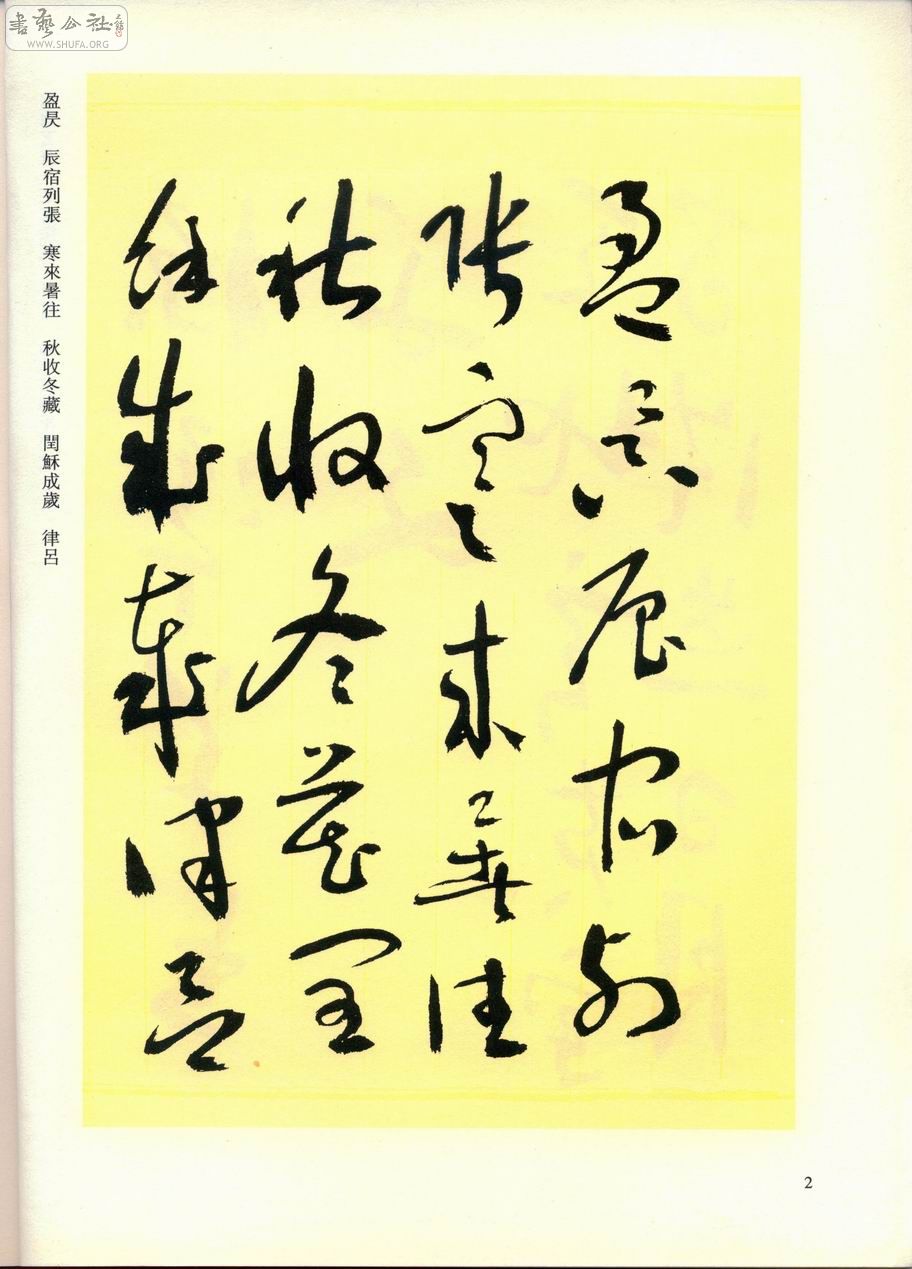 書藝公社
WWW.SHUFA.ORG
盈昃辰宿列
張寒來暑往
秋收冬藏閏
餘成歲律呂
盈昃 辰宿列張 寒來暑往 秋收冬藏 閏穌成歲 律呂
2